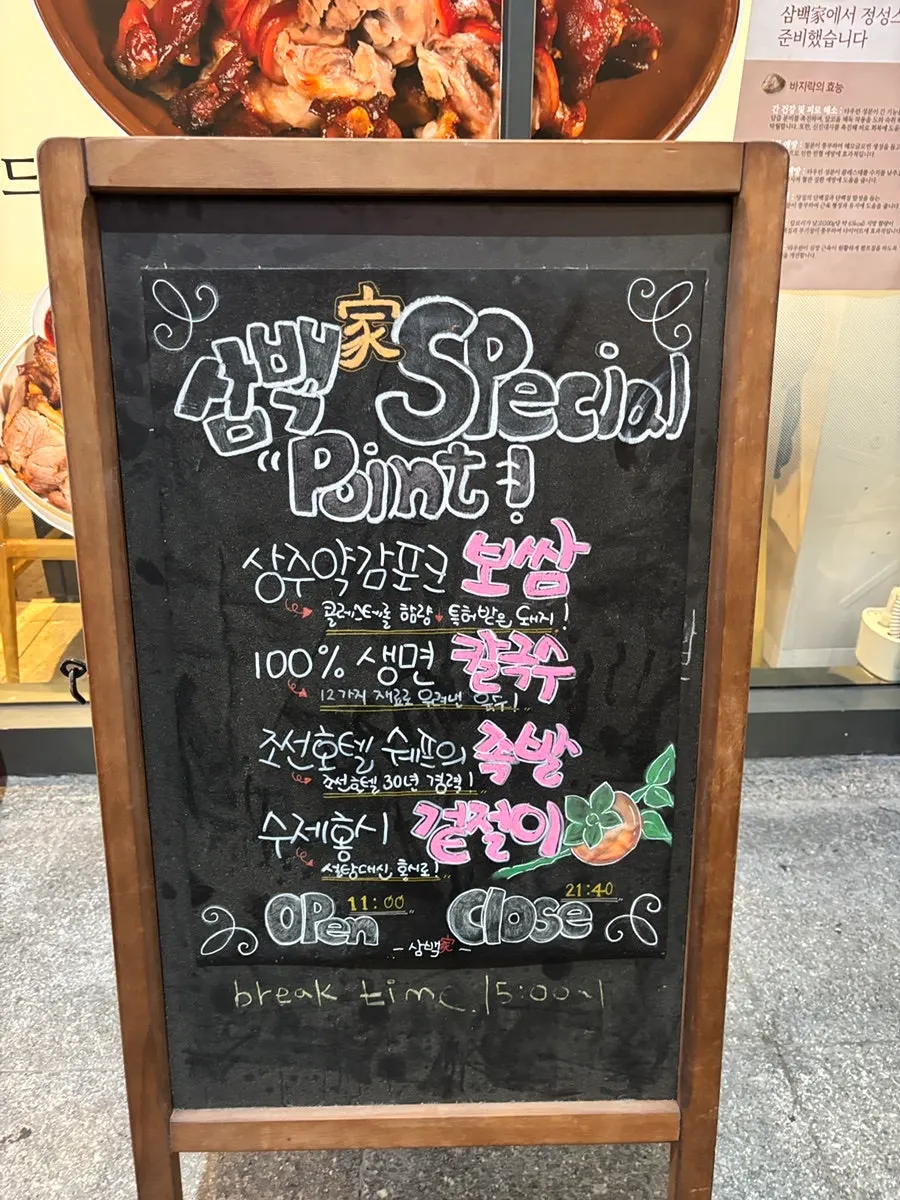 삼백家에서 정성스
준비했습니다
바지락의 효능
간 건강 및 피로 해소
드
삼백家 Special
"Point!
상주약감포크 보쌈
콜레스테롤 함량↓ 특허받은 돼지!
100% 생면 칼국수
12가지 재료로 우려낸 육수!
조선호텔 쉐프의 족발
조선호텔 30년 경력!
수제홍시 겉절이
설탕대신, 홍시로!
Open 11:00 Close 21:40
- 삼백家 -
break time. 15:00~1